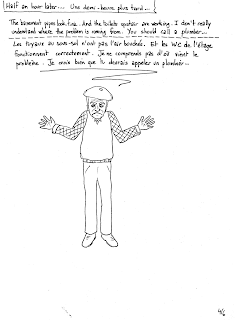 Half an hour later... Une demi-heure plus tard...
The basement pipes look fine. And the toilets upstair are working. I don't really
understand where the problem is coming from. You should call a plumber...
Les tuyaux au sous-sol n'ont pas l'air bouchés. Et les WC de l'étage
fonctionnent correctement. Je ne comprends pas d'où vient le
problème. Je crois bien que tu devrais appeler un plombier...
4/6